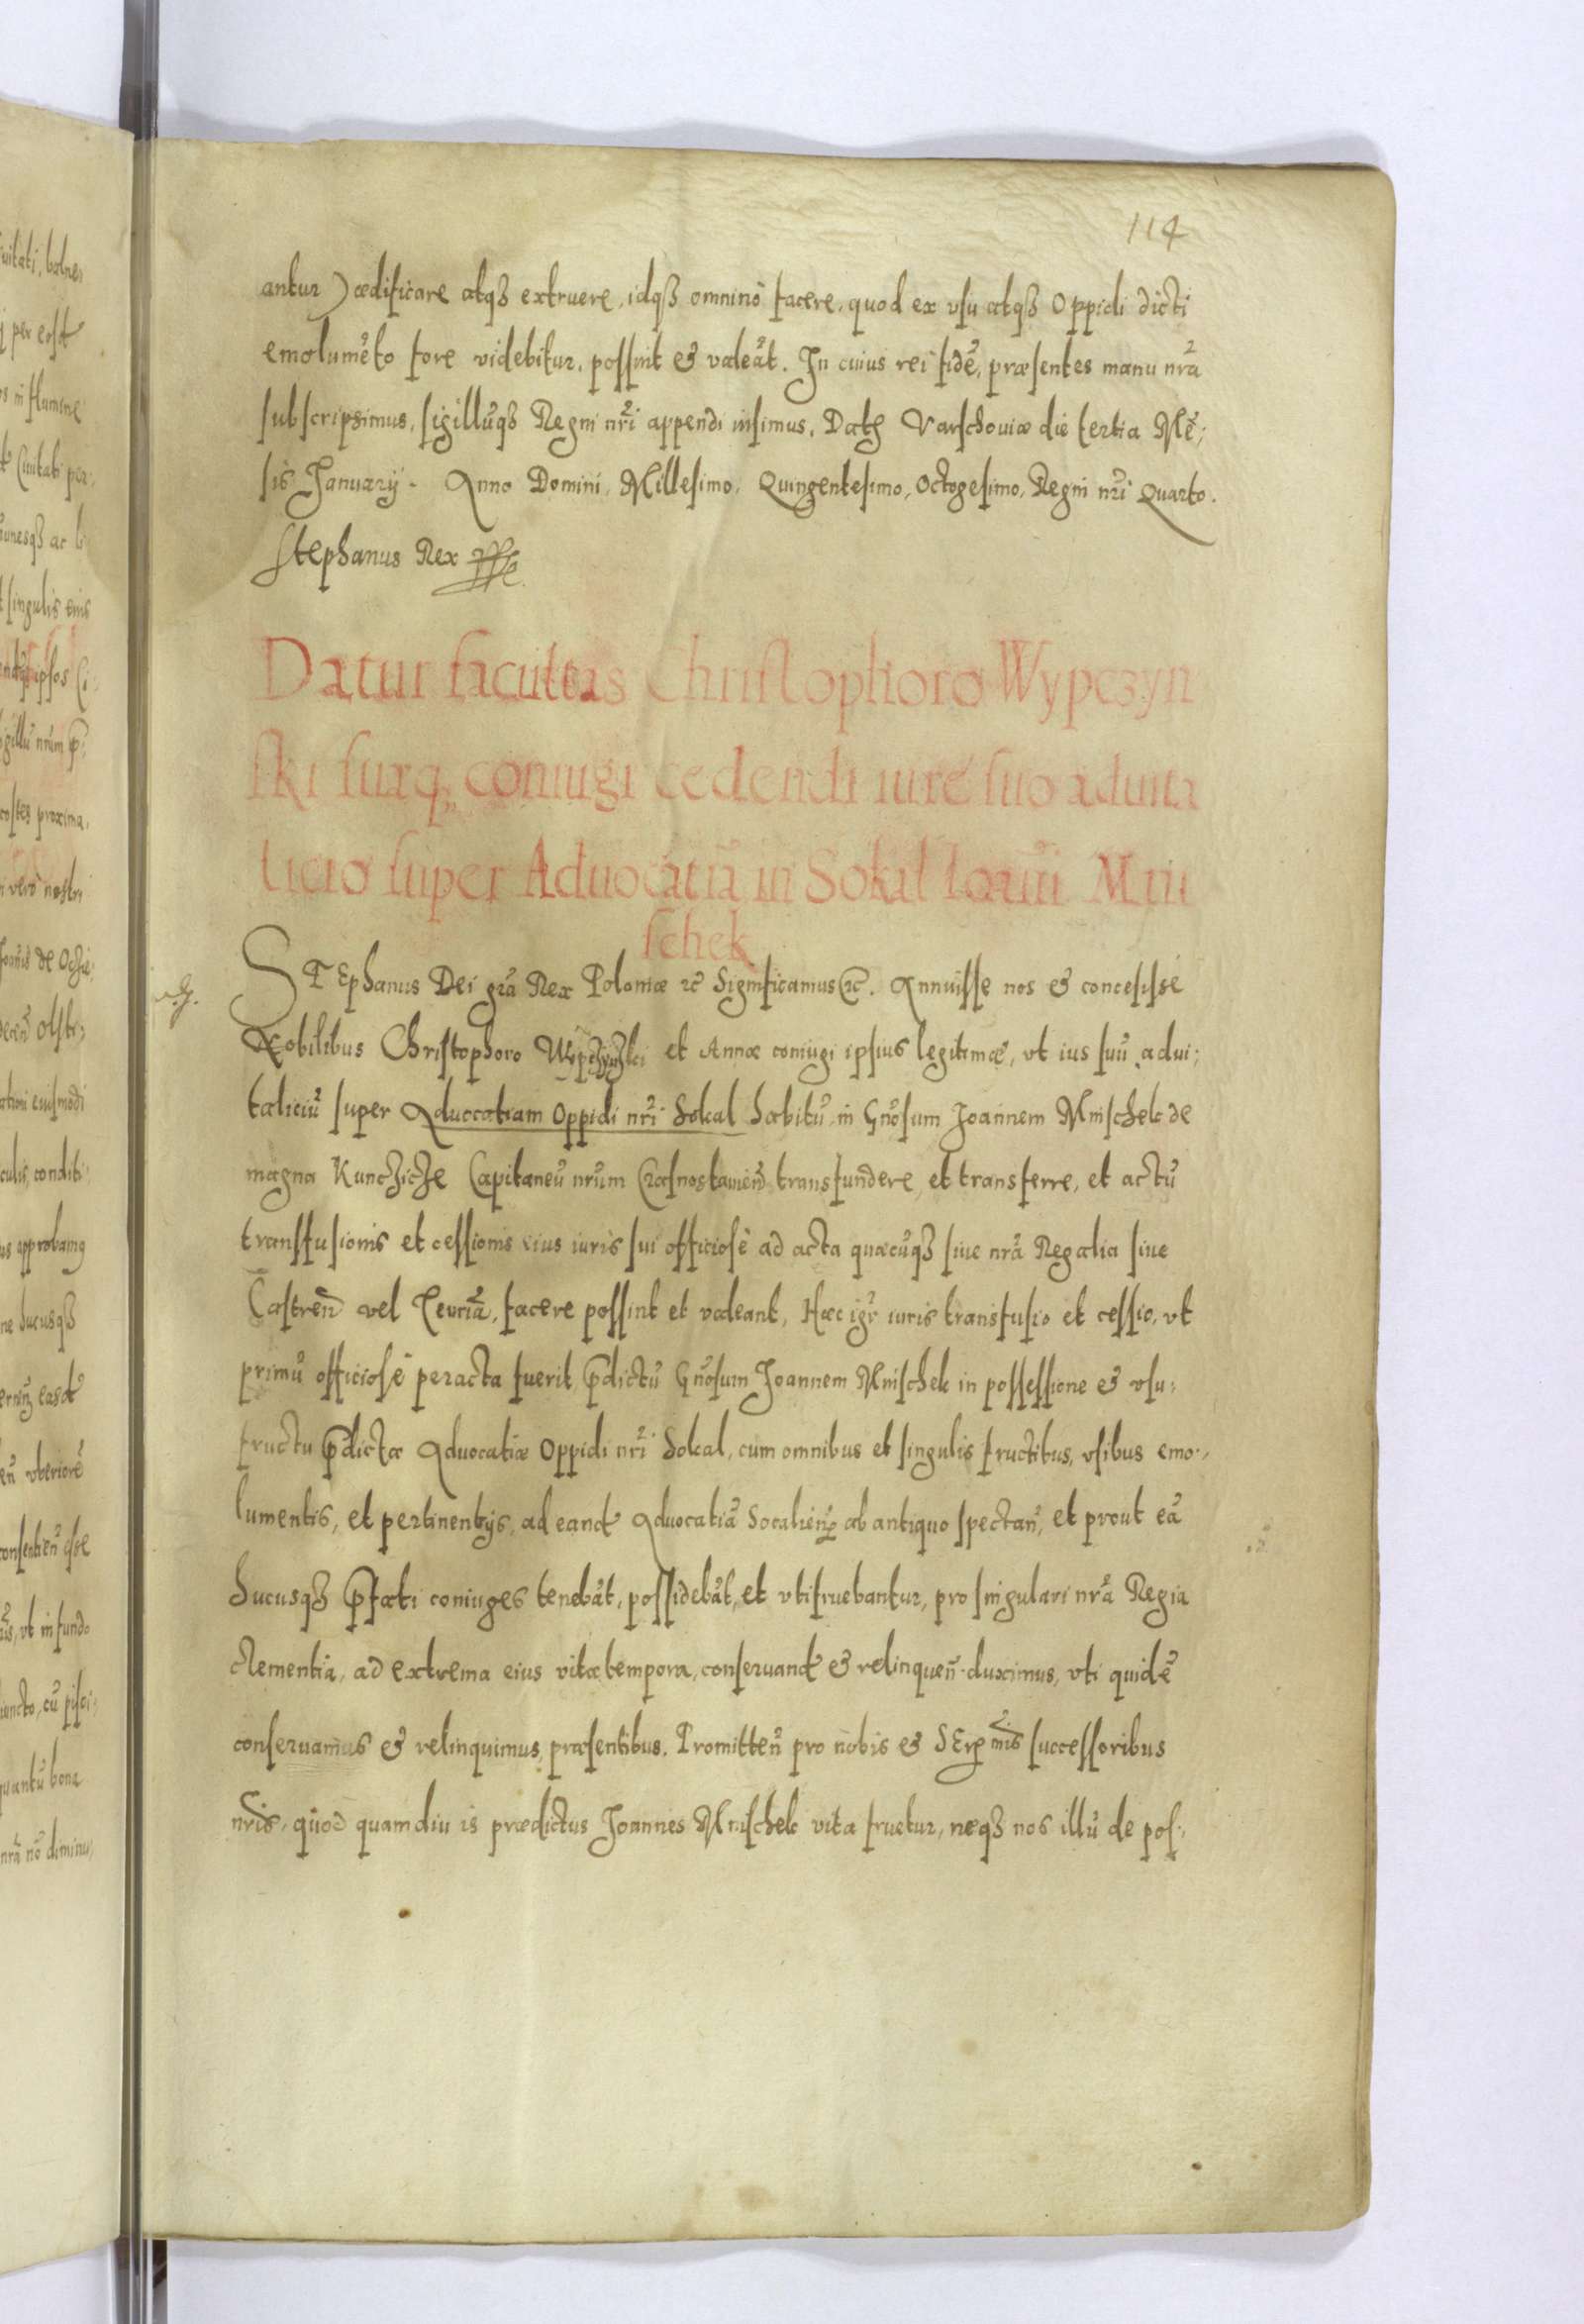 114
antur) ædificare atqȝ extruere, idqȝ omninò facere, quod ex vsu atqȝ Oppidi dicti
emolumēto fore videbitur, possint & valeāt. In cuius rei fidē, præsentes manu nrã
subscripsimus, sigillūqȝ Regni nrĩ appendi iussimus. Datȝ Varschouiæ die tertia Mē;
sis Januarij. Anno Domini, Millesimo, Quingentesimo, Octogesimo, Regni nrĩ Quarto.
Stephanus Rex
Datur facultas Christophoro Wypczyn
ski suæq₃ coniugi cedendi iure suo aduita
licio super Aduocatiā in Sokal Ioanni Mni
schek
STEphanus Dei grã Rex Poloniæ &c̃ Significamus &c̃. Annuisse nos & concessisse
Nobilibus Christophoro Wypczynski et Annæ coniugi ipsius legitimæ, vt ius suū adui;
taliciū super Aduocatiam Oppidi nrĩ Sokal habitū in Gnõsum Joannem Mnischek de
magna Kunczicze Capitaneū nrũm Crasnostauieñ transfundere, et transferre, et actū
transfusionis et cessionis eius iuris sui officiosè ad acta quæcūqȝ siue nrã Regalia siue
Castreñ vel Terrīa, facere possint et valeant, Hæc igr̃ iuris transfusio et cessio, vt
primū officiosè peracta fuerit, p̃dictū Gnõsum Joannem Mnischek in possessione & vsu;
fructu p̃dictæ Aduocatiæ Oppidi nrĩ Sokal, cum omnibus et singulis fructibus, vsibus emo;
lumentis, et pertinentijs, ad eand Aduocatiā Socalieñ ab antiquo spectañ, et prout eā
hucusqȝ p̃fati coniuges tenebāt, possidebāt, et vtifruebantur, pro singulari nrã Regia
clementia, ad extrema eius vitæ tempora, conseruand & relinqueñ duximus, vti quidē
conseruamus & relinquimus, præsentibus. Promitteñ pro nobis & SEr mis successoribus
nrĩs, quòd quamdiu is prædictus Joannes Mnischek vita fruetur, neqȝ nos illū de pos;